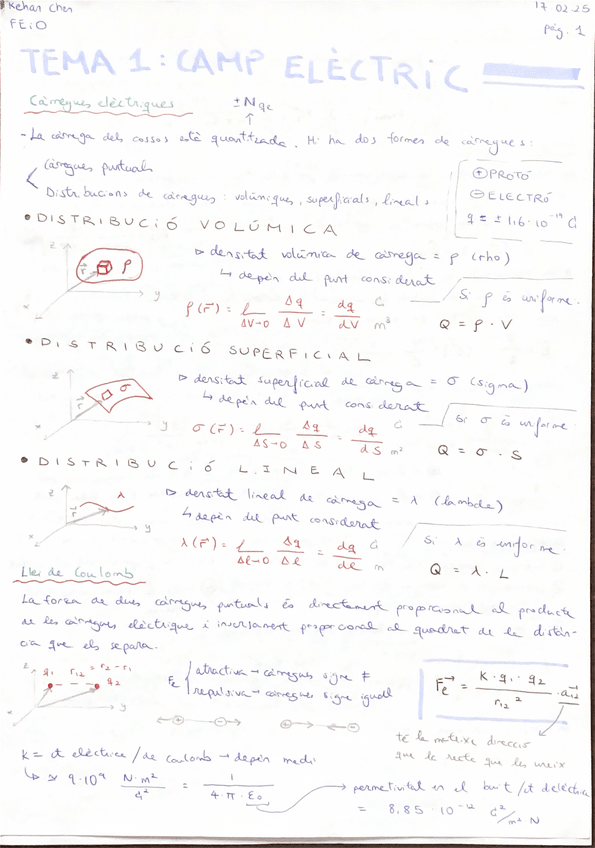 Kehan Chen
17 02 25
FEiO
pág. 1
TEMA 1: CAMP ELÈCTRIC
Càrregues elèctriques
± N qe
↑
- La càrrega dels cossos està quantitzada. Hi ha dos formes de càrregues:
càrregues puntuals
Distribucions de càrregues: volúmiques, superficials, lineals
⊕ PROTÓ
⊖ ELECTRÓ
q = ± 1,6 · 10⁻¹⁹ C
• DISTRIBUCIÓ VOLÚMICA
z
r⃗
ρ
y
x
▷ densitat volúmica de càrrega = ρ (rho)
↳ depèn del punt considerat
ρ(r⃗) = l ΔV→0 Δq/ΔV = dq/dV C/m³
Si ρ és uniforme.
Q = ρ · V
• DISTRIBUCIÓ SUPERFICIAL
z
σ
r⃗
y
x
▷ densitat superficial de càrrega = σ (sigma)
↳ depèn del punt considerat
σ(r⃗) = l ΔS→0 Δq/ΔS = dq/dS C/m²
Si σ és uniforme.
Q = σ · S
• DISTRIBUCIÓ LINEAL
z
λ
r⃗
y
x
▷ densitat lineal de càrrega = λ (lambda)
↳ depèn del punt considerat
λ(r⃗) = l Δℓ→0 Δq/Δℓ = dq/dℓ C/m
Si λ és uniforme.
Q = λ · L
Llei de Coulomb
La força de dues càrregues puntuals és directament proporcional al producte
de les càrregues elèctrique i inversament proporcional al quadrat de la distàn-
cia que els separa.
z
q₁
r₁₂ = r₂ - r₁
q₂
y
x
Fe
atractiva → càrregues signe ≠
repulsiva → càrregues signe igual
F⃗e = K · q₁ · q₂ / r₁₂² · a⃗₁₂
té la mateixa direcció
que la recta que les uneix
K = ct elèctrica / de coulomb → depèn medi
↳ ≃ 9·10⁹ N·m²/C² = 1/4·π·ε₀
→ permetivitat en el buit / ct dielèctrica
= 8,85 · 10⁻¹² C²/m² N